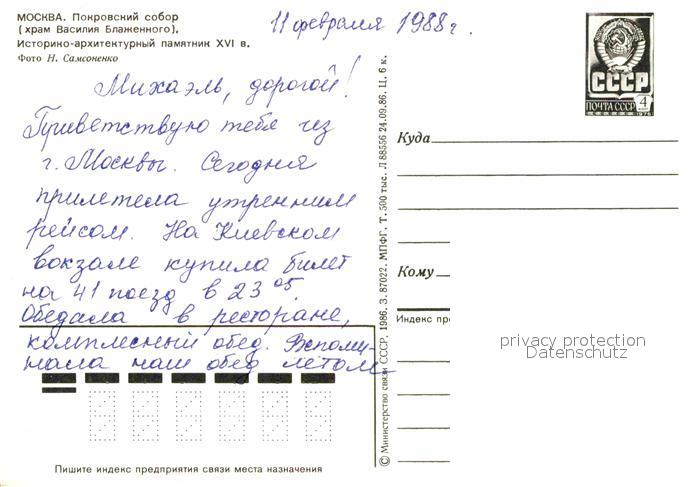 МОСКВА. Покровский собор
(храм Василия Блаженного),
Историко-архитектурный памятник XVI в.
Фото Н. Самсоненко
11 февраля 1988 г.
Михаэль, дорогой!
Приветствую тебя из
г. Москвы. Сегодня
прилетела утренним
рейсом. На Киевском
вокзале купила билет
на 41 поезд в 23 05.
Обедала в ресторане,
комплесный обед. Вспоми-
нала наш обед летом
Пишите индекс предприятия связи места назначения
© Министерство связи СССР, 1986. З. 87022. МПФГ. Т. 500 тыс. Л 88556 24.09.86. Ц. 6 к.
СССР
ПОЧТА СССР 4
1976
Куда
Кому
Индекс пр
privacy protection
Datenschutz